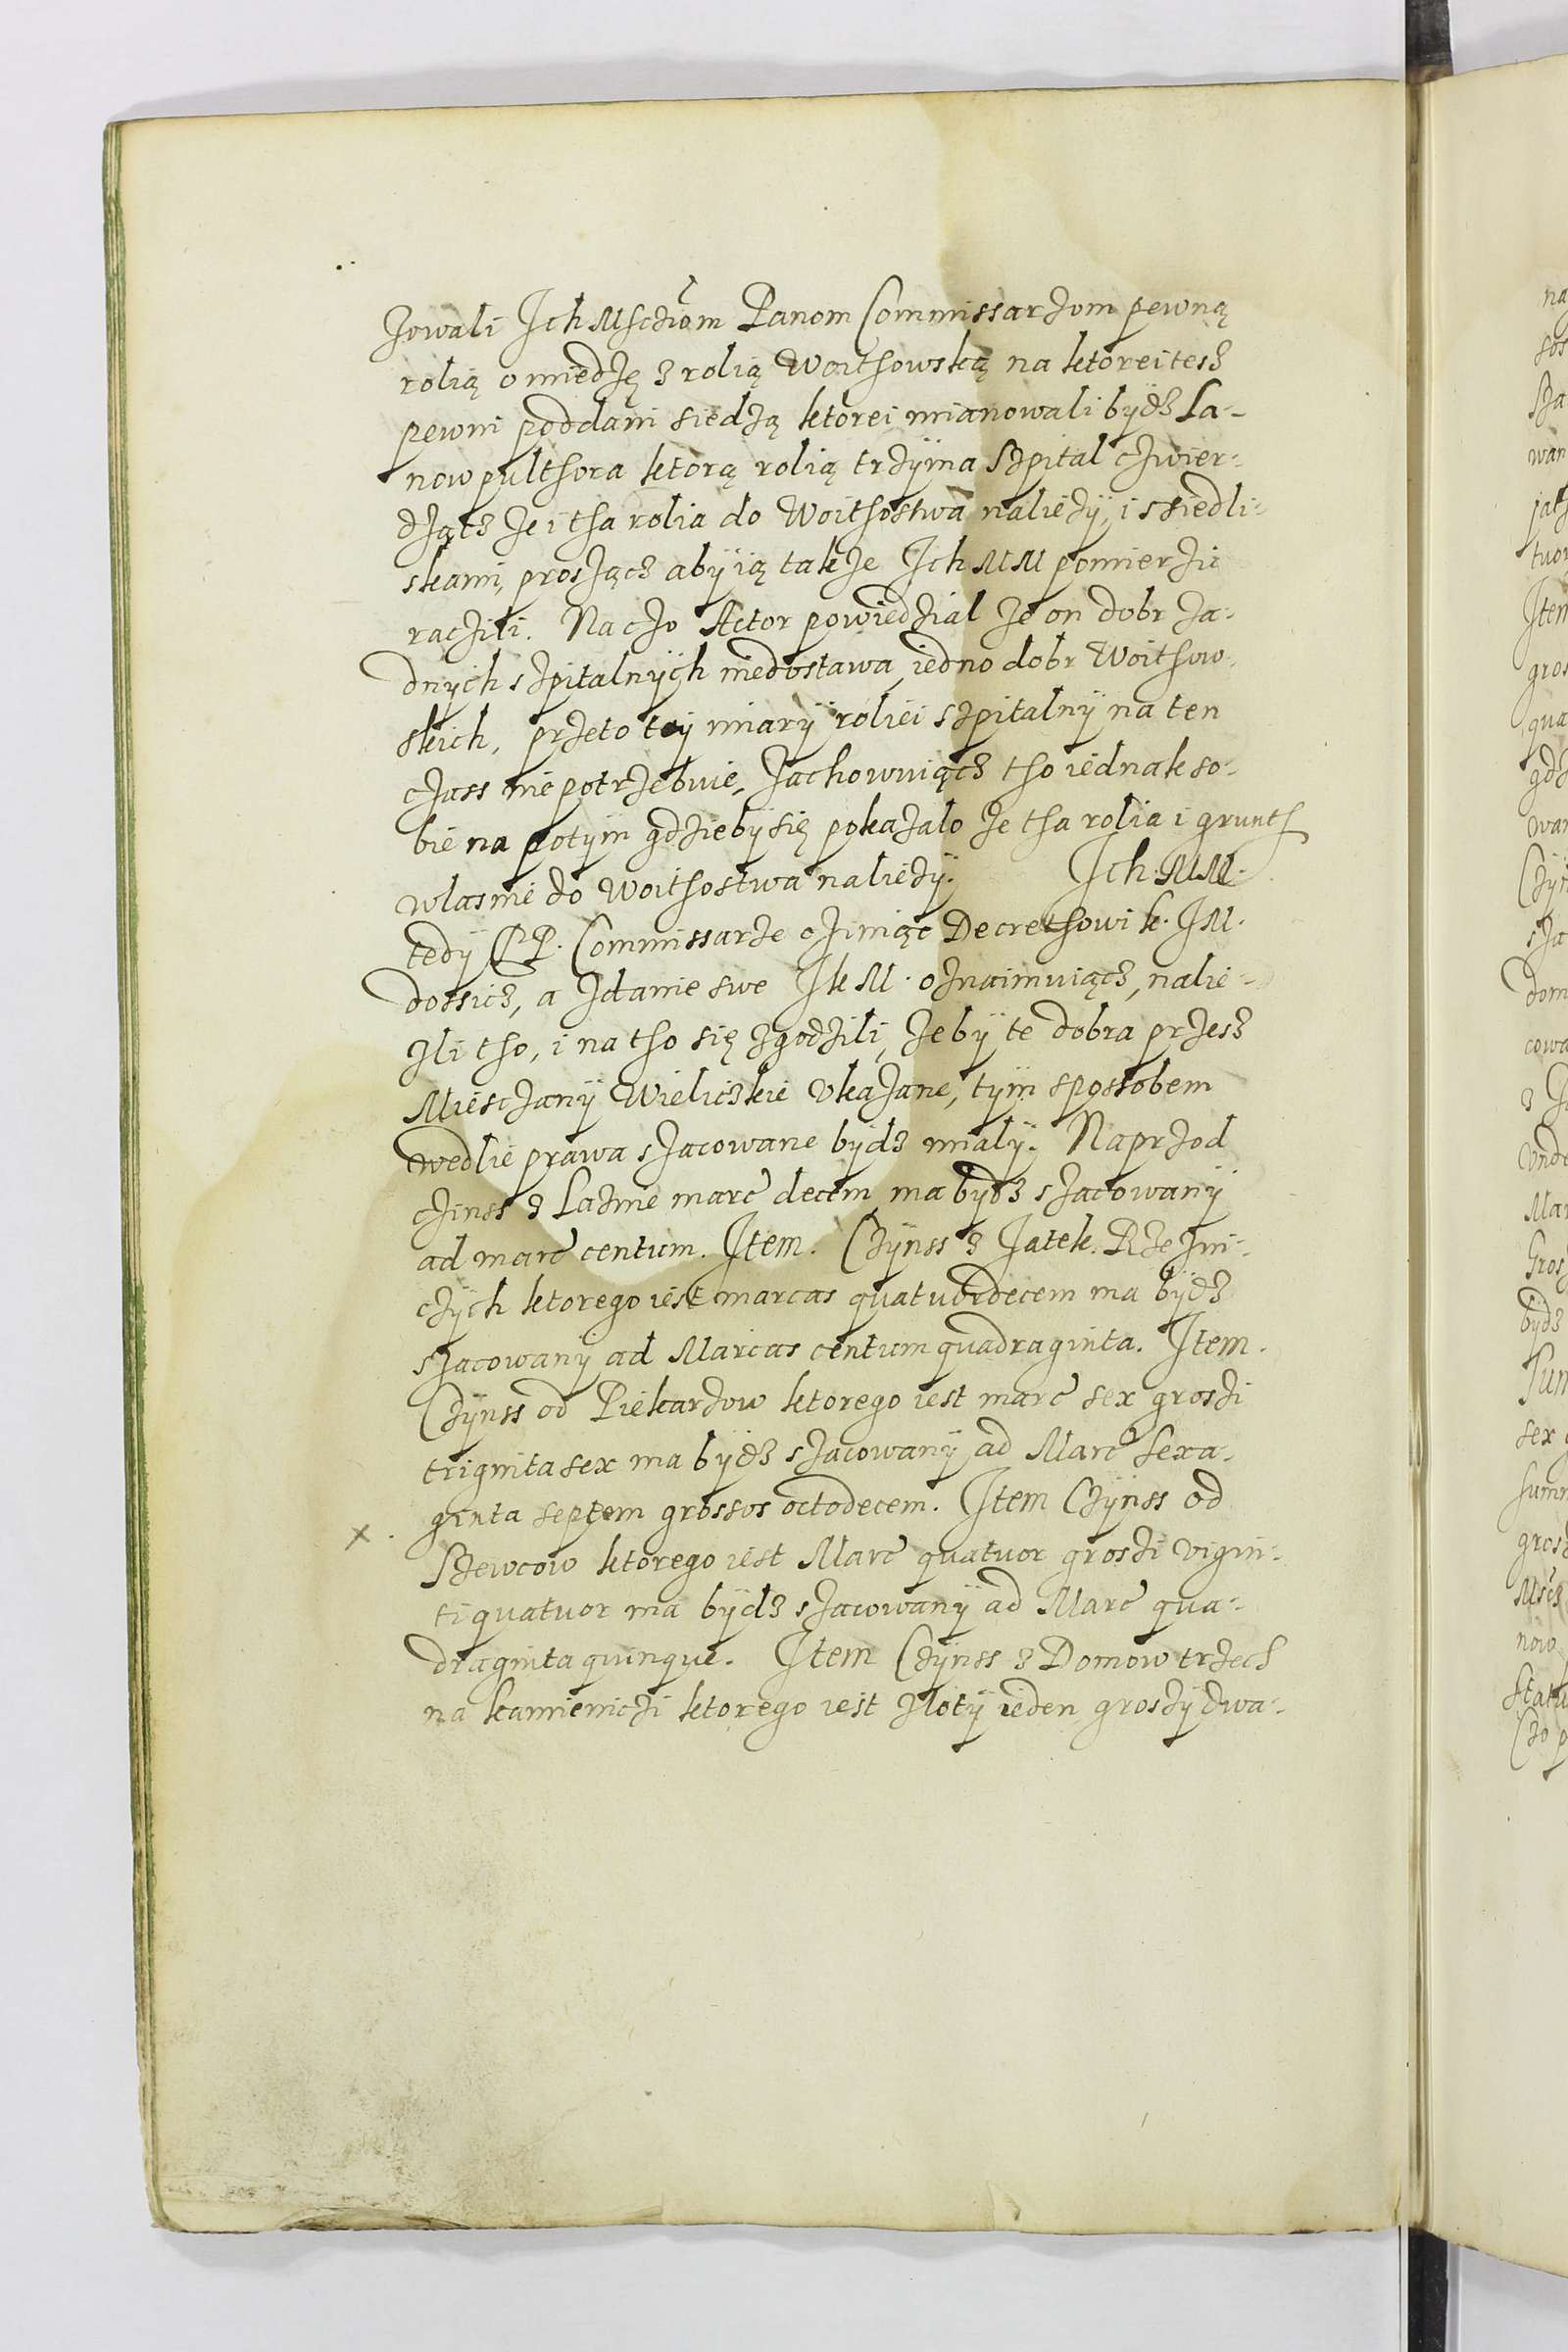 zowali Ich Mscziom Panom Commissarzom pewną
rolią o miedzę z rolią Woithowską na ktorei tesz
pewni poddani siedzą ktorei mianowali bydz La-
now pulthora ktorą rolią trzÿma Szpital czwier-
dząc ze i tha rolia do Woithostwa nalieżÿ, i s siedli-
skami, prosząc abÿ ią takze Ich MM pomierzic
raczili. Na czo Actor powiedzial ze on dobr za-
dnÿch szpitalnÿch niedostawa iedno dobr Woithow-
skich, przeto teÿ miarÿ roliei szpitalnÿ na ten
czass nie potrzebuie, zachowuiącz tho iednak so-
bie na potÿm gdziebÿ się pokazalo ze tha rolia i grunth
wlasnie do Woithostwa nalieżÿ. Ich. MM.
tedÿ PP. Commissarze cziniąc Decrethowi k. JM.
dossicz, a zdanie swe Ik M. oznaimuiącz, nalie-
zli tho, i na tho się zgodzili, ze bÿ te dobra przesz
Miesczanÿ Wieliczkie ukazane, tÿm spossobem
wedlie prawa szacowane bÿdz mialÿ. Naprzod
czinss z Laznie marc decem ma bÿdz szacowanÿ
ad marc centum. Item. Czÿnss z Iatek. Rzezni-
czÿch ktorego iest marcas quatuordecem ma bÿdz
szacowanÿ ad Marcas centum quadraginta. Item.
Czÿnss od Piekarzow ktorego iest marc sex groszi
triginta sex ma bÿdz szacowanÿ ad Marc Sexa-
ginta septem grossos octodecem. Item Czÿnss od
x. Szewcow ktorego iest Marc quatuor groszi vigin-
ti quatuor ma bÿdz szacowanÿ ad Marc qua-
draginta quinque. Item Czÿnss z Domow trzech
na kamieniczi ktorego iest zlotÿ ieden groszÿ dwa-